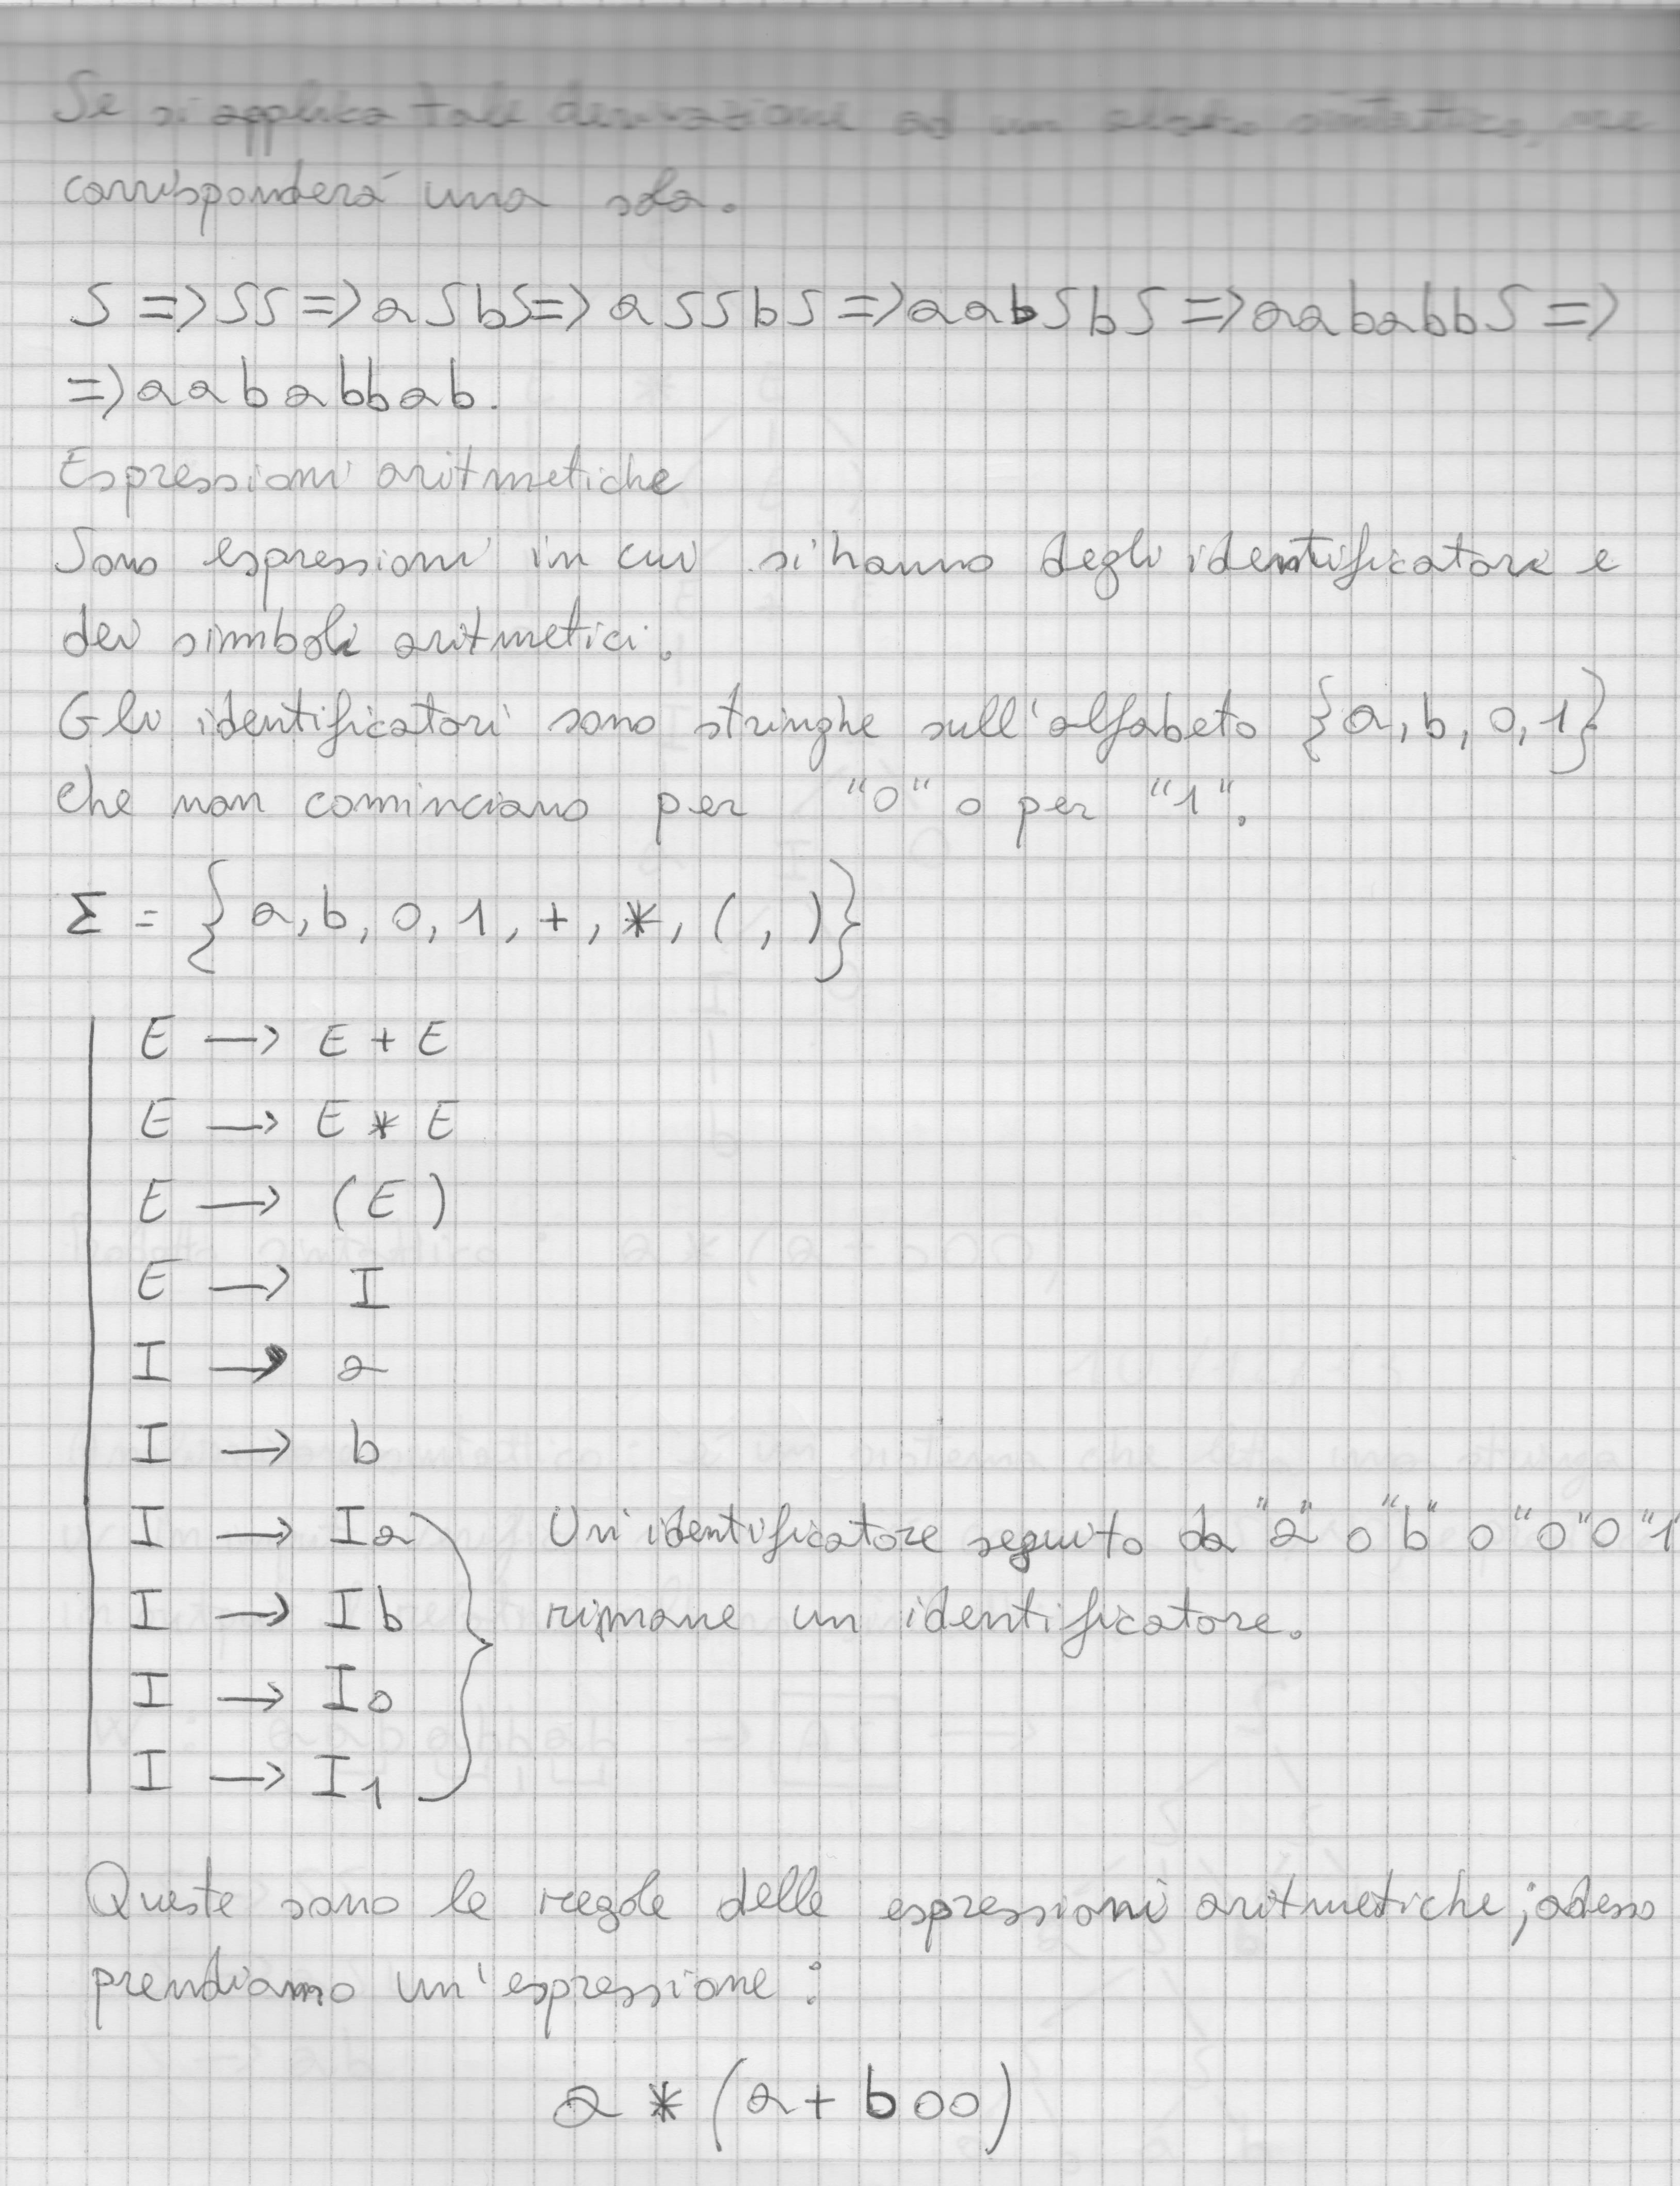 Se si applica tale derivazione ad un albero sintattico, ne
corrisponderà una sola.
S => SS => aSbS => aSSbS => aabSbS => aababbS =>
=> aababbab.
Espressioni aritmetiche
Sono espressioni in cui si hanno degli identificatori e
dei simboli aritmetici.
Gli identificatori sono stringhe sull'alfabeto {a, b, 0, 1}
che non cominciano per "0" o per "1".
Σ = {a, b, 0, 1, +, *, (, )}
E → E + E
E → E * E
E → (E)
E → I
I → a
I → b
I → Ia Un identificatore seguito da "a" o "b" o "0" o "1"
I → Ib rimane un identificatore.
I → I0
I → I1
Queste sono le regole delle espressioni aritmetiche; adesso
prendiamo un'espressione:
a * (a + b00)